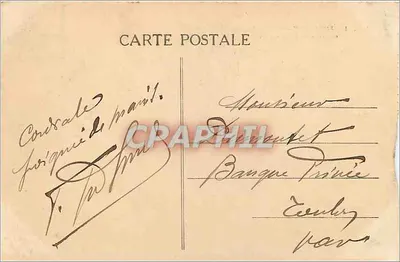 CARTE POSTALE
Cordiale
poignée de mains.
Monsieur
Dumoutet
Banque Privée
Toulon
Var
CPAPHIL